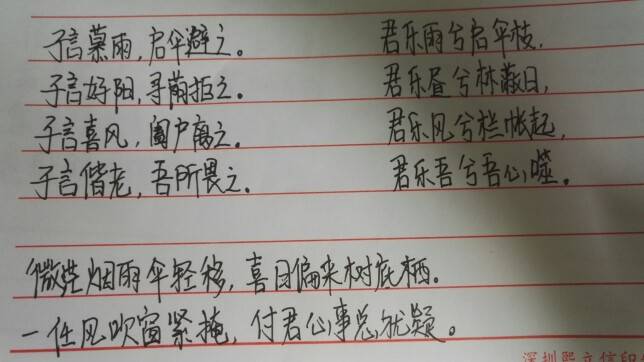 子言慕雨，启伞避之。
子言好阳，寻荫拒之。
子言喜风，阖户离之。
子言偕老，吾所畏之。
君乐雨兮启伞枝，
君乐昼兮林蔽日，
君乐风兮栏帐起，
君乐吾兮吾心噬。
微茫烟雨伞轻移，喜日偏来树底栖。
一任风吹窗紧掩，付君心事总犹疑。
深圳熙立信印